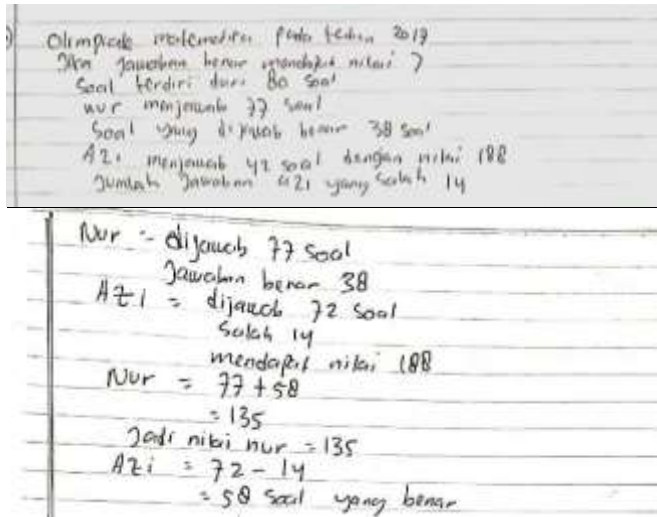 Olimpiade matematika pada tahun 2019
Jika Jawaban benar mendapat nilai 7
Soal terdiri dari 80 soal
nur menjawab 77 soal
Soal yang dijawab benar 38 soal
Azi menjawab 42 soal dengan nilai 188
Jumlah Jawaban azi yang salah 14
Nur = dijawab 77 Soal
Jawaban benar 38
AZi = dijawab 72 soal
Salah 14
mendapat nilai 188
Nur = 77 + 58
= 135
Jadi nilai nur = 135
AZi = 72 - 14
= 58 soal yang benar